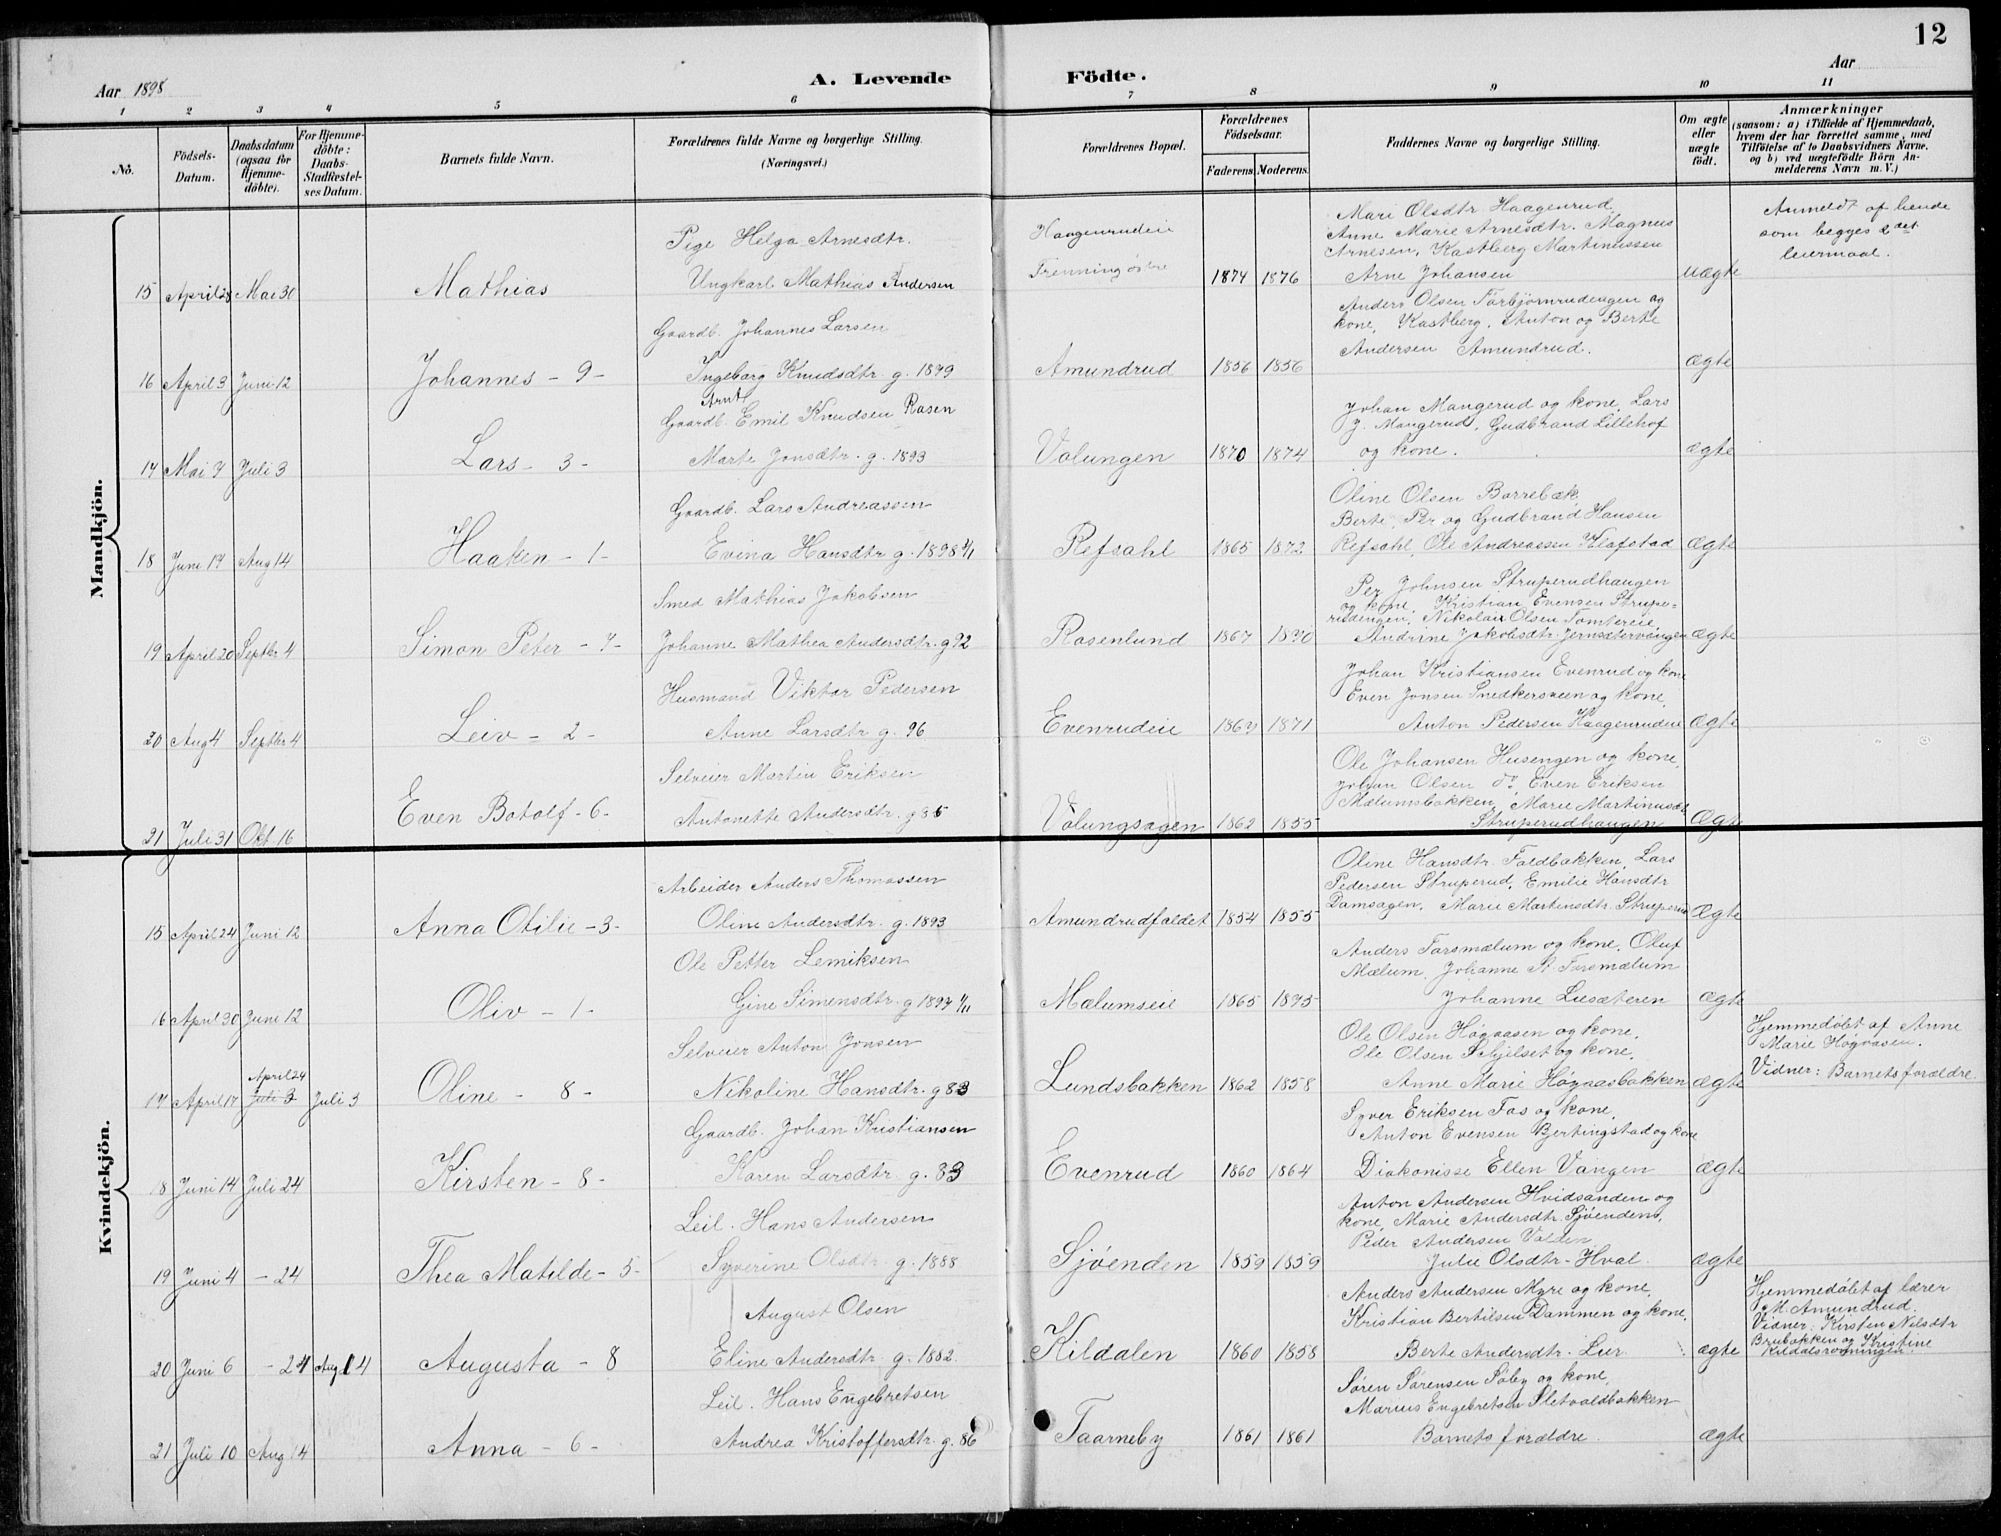 12
Aar 1898
A. Levende Födte.
Aar
1 2 3 4 5 6 7 8 9 10 11
No.
Födsels-Datum.
Daabsdatum (ogsaa for Hjemme-döbte).
For Hjemme-döbte: Daabs-Stadfæstel-ses Datum.
Barnets fulde Navn.
Forældrenes fulde Navne og borgerlige Stilling.
(Næringsvei.)
Forældrenes Bopæl.
Forældrenes Födselsaar.
Faderens. Moderens.
Faddernes Navne og borgerlige Stilling.
Om ægte eller uægte födt.
Anmærkninger
(saasom: a) i Tilfælde af Hjemmedaab,
hvem der har forrettet samme, med
Tilföielse af to Daabsvidners Navne.
og b) ved uægtefödte Börn An-
melderens Navn m. V.)
Mandkjön.
Pige Helga Arnesdtr.
Ungkarl Mathias Andersen
15 April 28 Mai 30 Mathias
Haagenrudeie
Frenning østre 1874 1876
Mari Olsdtr Haagenrud,
Anne Marie Arnesdtr. Magnus
Arnesen, Kastberg Martinussen
Arne Johansen
uægte
Anmeldt af hende
som begges 2det
leiermaal.
Gaardb. Johannes Larsen
16 April 3 Juni 12 Johannes - 9 -
Ingeborg Knudsdtr g. 1879
Amundrud 1856 1856
Anders Olsen Torbjørnrudengen og
kone, Kastberg, Anton og Berte
Andersen Amundrud.
ægte
Arnt
Gaardb. Emil Knudsen Rasen
17 Mai 7 Juli 3 Lars - 3 -
Marte Jonsdtr. g. 1893
Volungen 1870 1874
Johan Mangerud og kone, Lars
J. Mangerud, Gudbrand Lillehof
og kone.
ægte
Gaardb. Lars Andreassen
18 Juni 17 Aug 14 Haaken - 1 -
Evina Hansdtr g. 1898 4/1
Refsahl 1865 1872
Oline Olsen Borrebæk
Berte, Per og Gudbrand Hansen
Refsahl, Ole Andreassen Klafstad
ægte
Smed Mathias Jakobsen
19 April 20 Septbr 4 Simon Peter - 7 -
Johanne Mathea Andersdtr. g 92
Rosenlund 1867 1870
Per Johnsen Struperudhaugen
og kone, Kristian Evensen Strupe=
rudengen, Nikolai Olsen Tomtereie,
Andrine Jakobsdtr. Jernsætervangen
ægte
Husmand Viktor Pedersen
20 Aug 4 Septbr 4 Leiv - 2 -
Anne Larsdtr g. 96
Evenrudeie 1869 1871
Johan Kristiansen Evenrud og kone
Even Jonsen Snedkersveen og kone,
Anton Pedersen Haagenrudeie
ægte
Selveier Martin Eriksen
21 Juli 31 Okt 16 Even Botolf - 6 -
Antonette Andersdtr. g 85
Volungsagen 1862 1855
Ole Johansen Husengen og kone,
Johan Olsen do Even Eriksen
Mælumsbakken, Marie Martinusdtr
Struperudhaugen
Ægte
Kvindekjön.
Arbeider Anders Thomassen
15 April 24 Juni 12 Anna Otilie - 3 -
Oline Andersdtr. g. 1893
Amundrudfaldet 1854 1855
Oline Hansdtr. Faldbakken, Lars
Pedersen Struperud, Emilie Hansdtr
Damsagen, Marie Martensdtr. Struperud
Ægte
Ole Petter Lemiksen
16 April 30 Juni 12 Oliv - 1 -
Gine Simensdtr. g 1897 4/11
Mælumseie 1865 1875
Anders Torsmælum og kone, Oluf
Mælum, Johanne A. Torsmælum
Johanne Liesæteren
ægte
Selveier Anton Jonsen
17 April 17 April 24 Juli 3 Juli 3 Oline - 8 -
Nikoline Hansdtr. g 83
Lundsbakken 1862 1858
Ole Olsen Høgaasen og kone,
Ole Olsen Schjelset og kone,
Anne Marie Høgaasbakken
ægte
Hjemmedøbt af Anne
Marie Høgaasen.
Vidner: Barnets forældre
Gaardb. Johan Kristiansen
18 Juni 14 Juli 24 Kirsten - 8 -
Karen Larsdtr. g. 83
Evenrud 1860 1864
Syver Eriksen Fos og kone,
Anton Evensen Bjertingstad og kone
Diakonisse Ellen Vangen
ægte
Leil. Hans Andersen
19 Juni 4 - 24 Thea Matilde - 5 -
Syverine Olsdtr g. 1888
Sjøenden 1859 1859
Anton Andersen Hvidsanden og
kone, Marie Andersdtr. Sjøenden,
Peder Andersen Volden
Julie Olsdtr Hval.
ægte
August Olsen
20 Juni 6 - 24 Aug 14 Augusta - 8
Eline Andersdtr. g. 1882.
Kildalen 1860 1858
Anders Andersen Myre og kone,
Kristian Bertilsen Dammen og kone,
Berte Andersdtr. Lier
ægte
Hjemmedøbt af lærer
M. Amundrud.
Vidner: Kirsten Nilsdtr
Brubakken og Kristine
Kildalsrønningen.
Leil. Hans Engebretsen
21 Juli 10 Aug 14 Anna - 6 -
Andrea Kristoffersdtr. g. 86
Taarneby 1861 1861
Søren Sørensen Søby og kone,
Marius Engebretsen Sletvoldbakken
Barnets forældre.
ægte